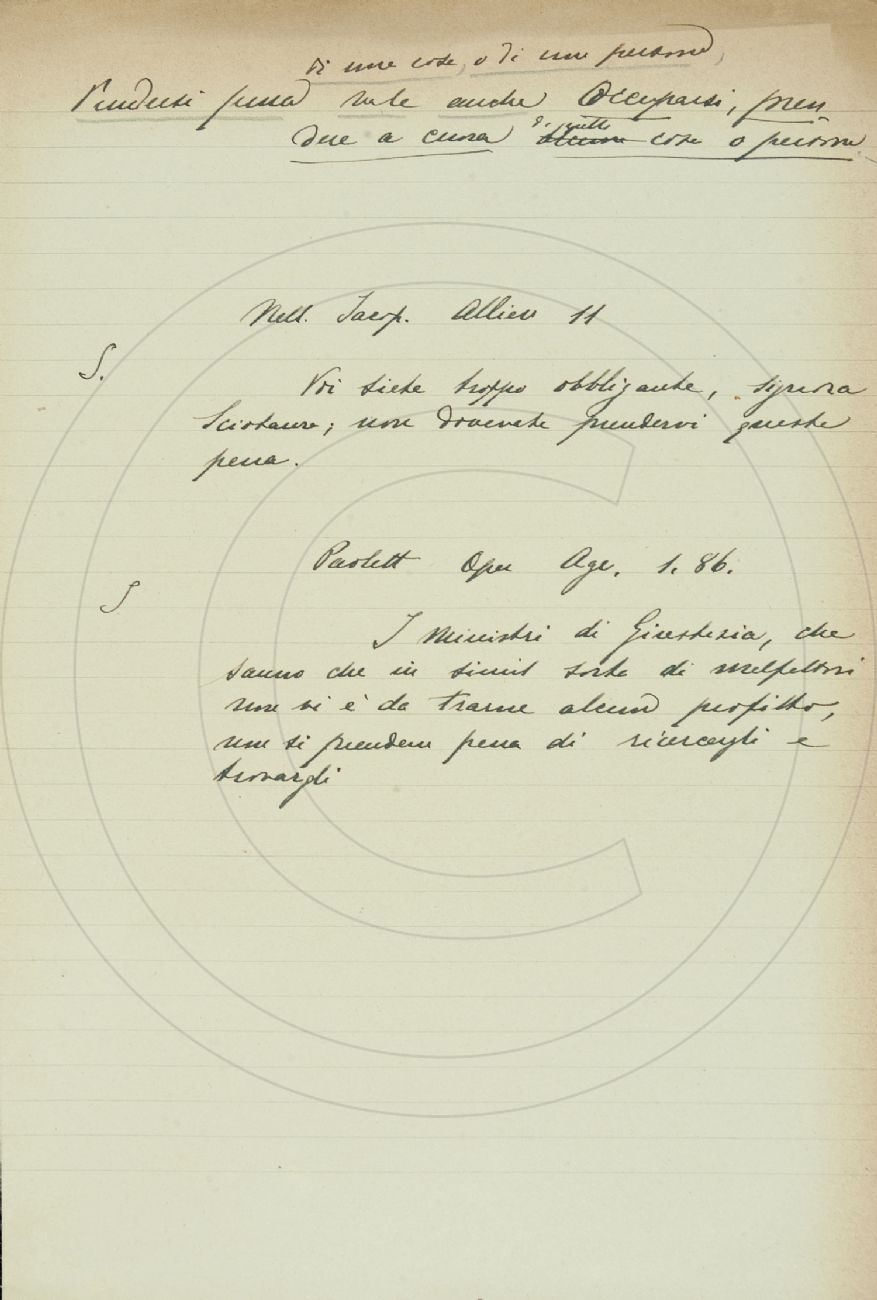 di una cosa, o di una persona,
Prendersi pena vale anche Occuparsi, pren
dere a cuore di quella alcuna cosa o persona
Nell. Jacop. Alliev. 11
S.
Voi siete troppo obbligante, signora
; non dovevate prendervi queste
pena.
Paolett Oper Agr. 1. 86.
S
I Ministri di Giustizia, che
sanno che in simil sorta di malfattori
non vi è da trarne alcun profitto,
non si prendeva pena di ricercargli e
trovargli